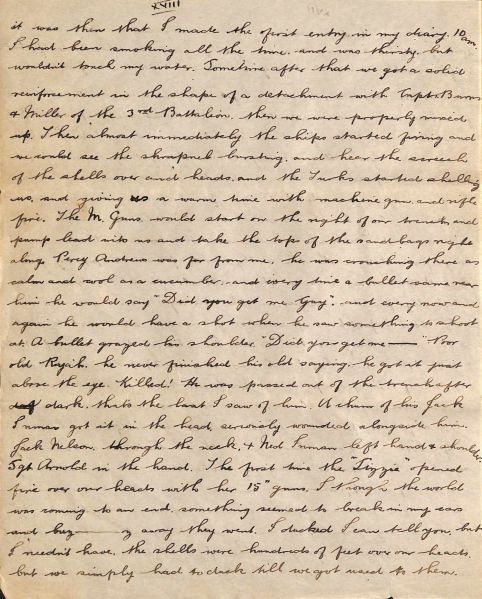 XVIII
it was then that I made the first entry in my diary, 10 am.
I had been smoking all the time, and was thirsty, but
wouldn't touch my water. Sometime after that we got a solid
reinforcement in the shape of a detachment with Capts. Burns
& Miller of the 3rd Battalion, then we were properly mixed
up. Then almost immediately the ships started firing and
we could see the shrapnel bursting, and hear the screech
of the shells over our heads, and the Turks started shelling
us, and giving us a warm time with machine gun, and rifle
fire. The M. Guns, would start on the right of our trench, and
pump lead into us and take the top of the sandbags right
along. Percy Andrews was far from me, he was crouching there as
calm and cool as a cucumber, and every time a bullet came near
him he would say "Did you get me Guy", and every now and
again he would have a shot when he saw something to shoot
at. A bullet grazed his shoulder, "Did you get me — " Poor
old he never finished his old saying, he got it just
above the eye. Killed! He was passed out of the trench after
dark, thats the last I saw of him. A chum of his Jack
Inman got it in the head, seriously wounded alongside him.
Jack Nelson, through the neck, & Ned Inman left hand & shoulder,
Sgt Arnold in the hand. The first time the "Lizzie" opened
fire over our heads with her 15" guns, I though the world
was coming to an end, something seemed to break in my ears
and buz——z away they went. I ducked I can tell you, but
I needn't have, the shells were hundreds of feet over our heads,
but we simply had to duck till we got used to them.